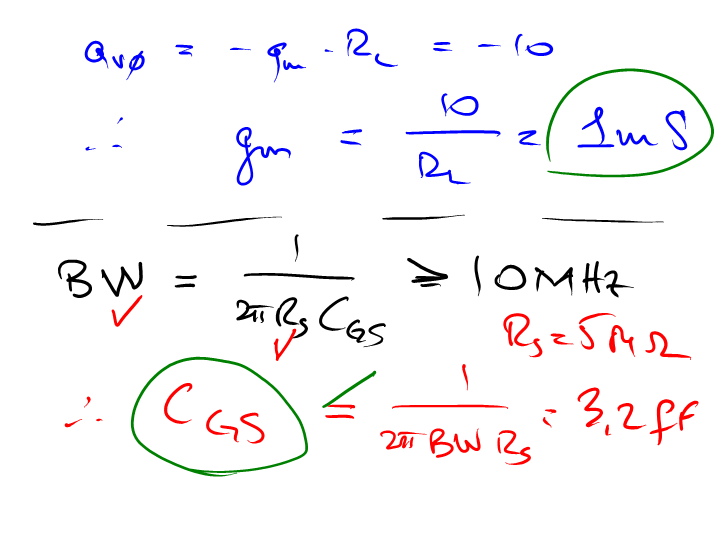 a_{vø} = - g_m · R_L = -10
∴ g_m = 10 / R_L = 1 m S
BW = 1 / 2π R_S C_{GS} ≥ 10 MHz
R_S = 5 M Ω
∴ C_{GS} ≤ 1 / 2π BW R_S = 3,2 fF